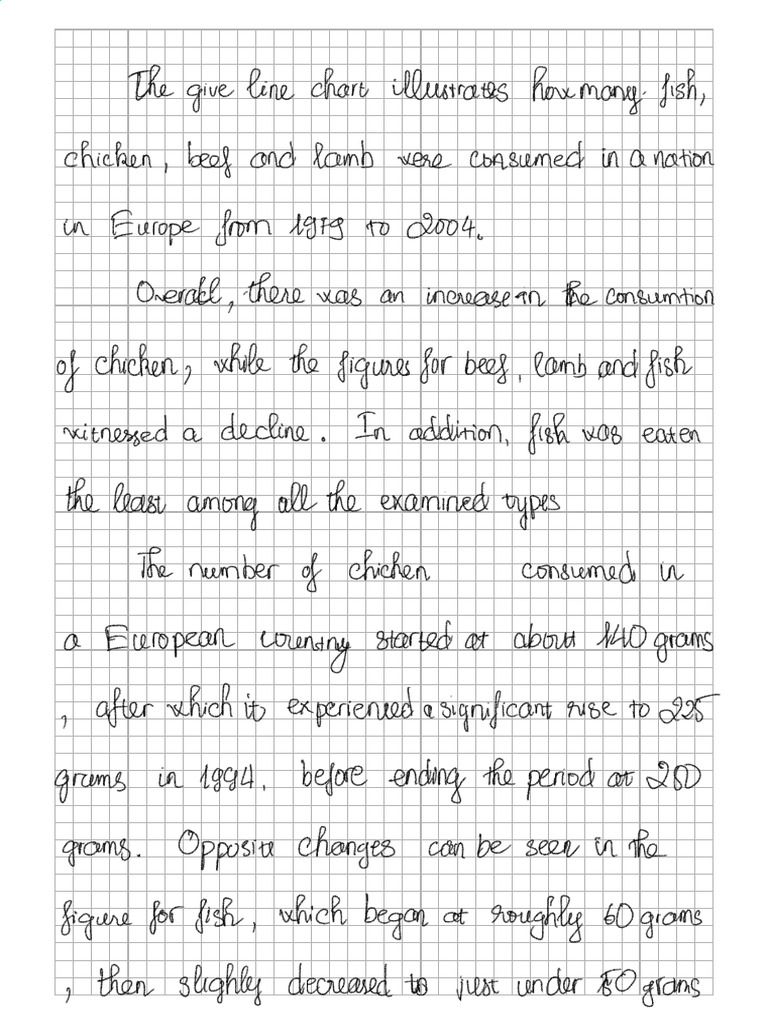 The give line chart illustrates how many fish,
chicken, beef and lamb were consumed in a nation
in Europe from 1979 to 2004.
Overall, there was an increase in the consumtion
of chicken, while the figures for beef, lamb and fish
witnessed a decline. In addition, fish was eaten
the least among all the examined types
The number of chicken consumed in
a European country started at about 140 grams
, after which it experienced a significant rise to 225
grams in 1994, before ending the period at 250
grams. Opposite changes can be seen in the
figure for fish, which began at roughly 60 grams
, then slighly decreased to just under 50 grams